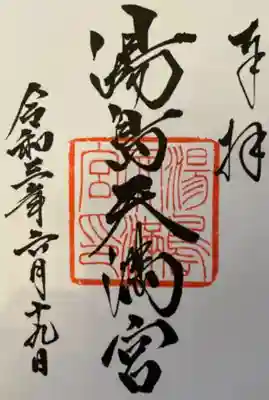 奉拝
湯島天満宮
令和三年六月十九日
湯島天満宮印